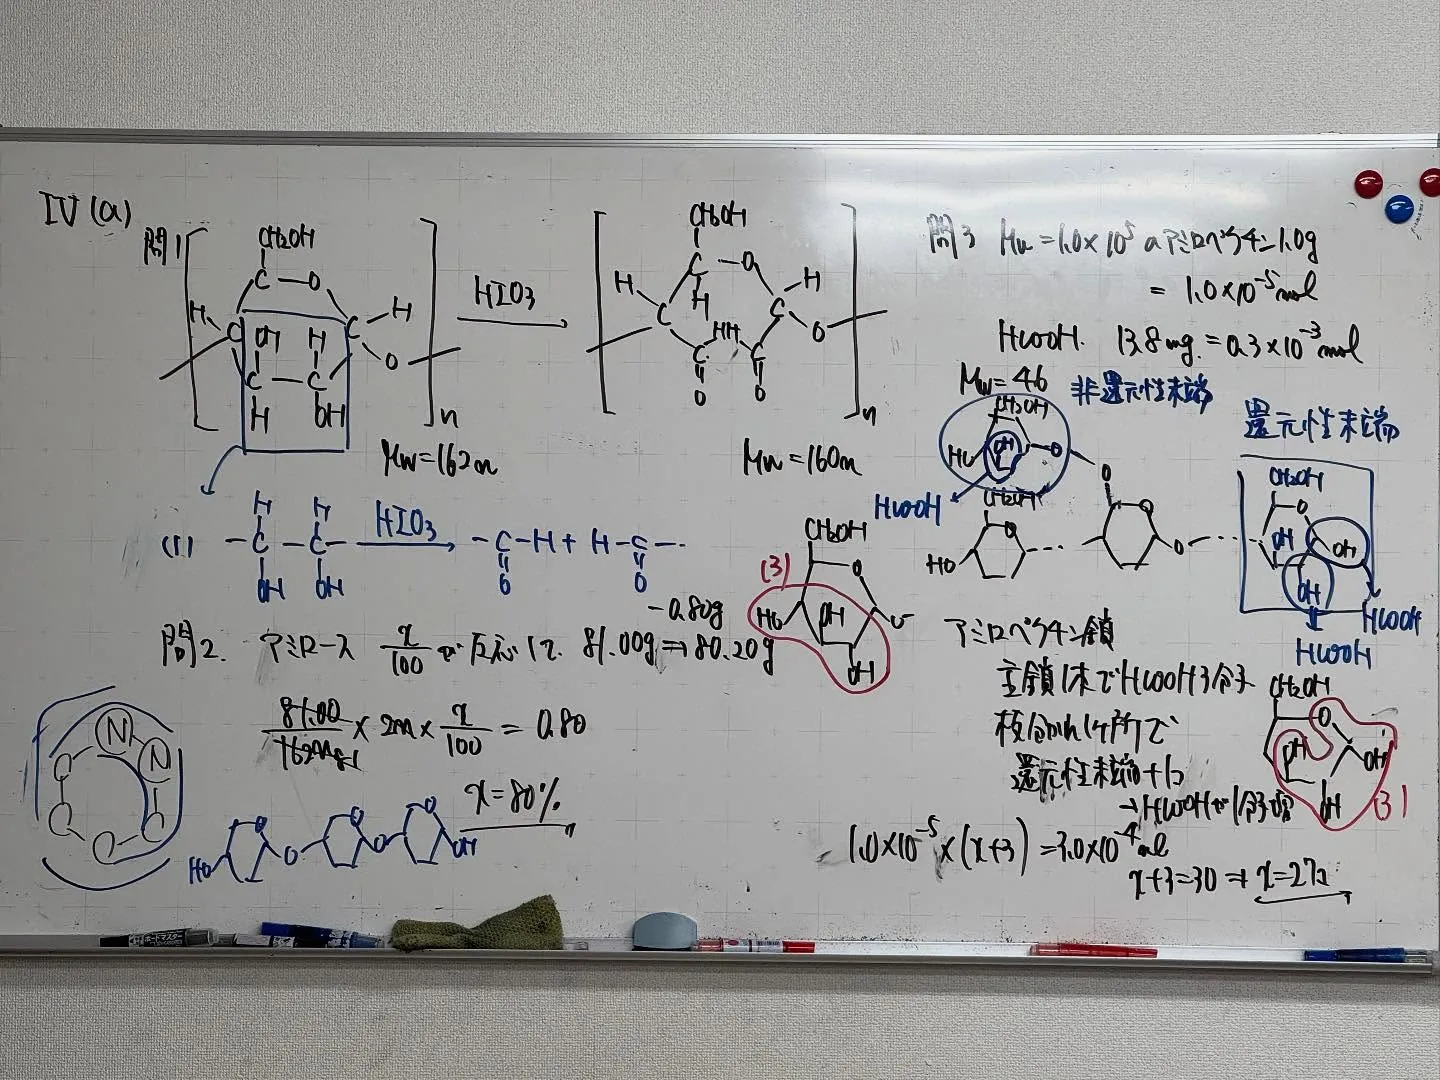 IV (a)
問1
CH2OH
C-O
H C C H
OH H
C-C O
H OH
n
Mw=162n
HIO3
CH2OH
C-O
H C H C H
HH O
C C
O O
n
Mw=160n
(1)
H H
-C-C-
OH OH
HIO3
-C-H + H-C-
O O
問2. アミロース x/100 が反応して 81.00g⇒80.20g
-0.80g
81.00/162n × 2n × x/100 = 0.80
x=80%
N N
HO O O OH
問3 Mw=1.0×10^5 のアミロペクチン1.0g
=1.0×10^-5 mol
HCOOH 13.8mg=0.3×10^-3 mol
Mw=46
非還元性末端
還元性末端
CH2OH
HO OH O
HCOOH
CH2OH
HO O
O O O
CH2OH
O
OH OH
OH
HCOOH
HCOOH
(3)
CH2OH
O
HO OH
OH
アミロペクチン鎖
主鎖1本でHCOOH3分子
枝分かれ1ヶ所で
還元性末端+1コ
→HCOOHが1分子
CH2OH
O
OH OH
OH
(3)
1.0×10^-5×(x+3)=3.0×10^-4 mol
x+3=30⇒x=27コ
ボードマスター